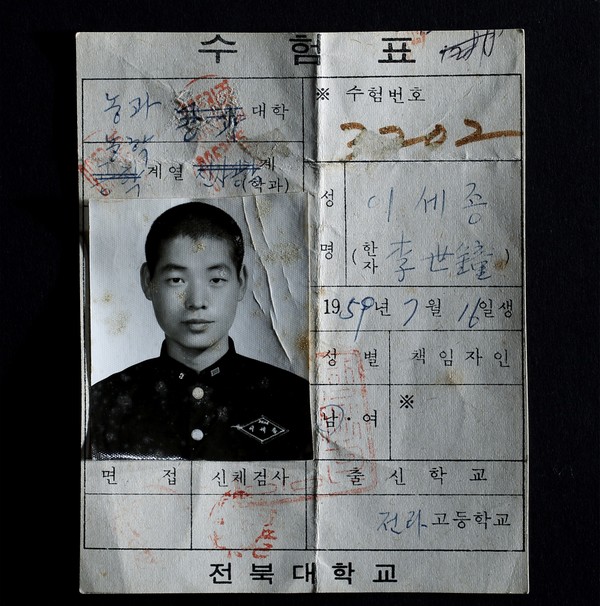 수 험 표
농과 대학
※ 수험번호
농학
3202
계열 계
(학과)
성 명
이 세 종
(한자 李世鍾)
1959년 7월 16일생
성 별
책 임 자 인
남 · 여
※
면 접
신체검사
출 신 학 교
전라고등학교
전북대학교